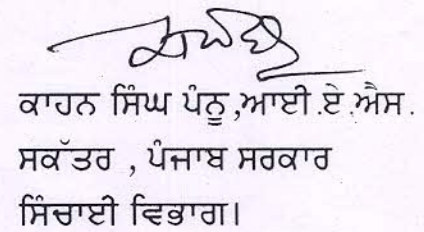 ਕਾਹਨ ਸਿੰਘ ਪੰਨੂ ,ਆਈ .ਏ .ਐਸ .
ਸਕੱਤਰ , ਪੰਜਾਬ ਸਰਕਾਰ
ਸਿੰਚਾਈ ਵਿਭਾਗ।